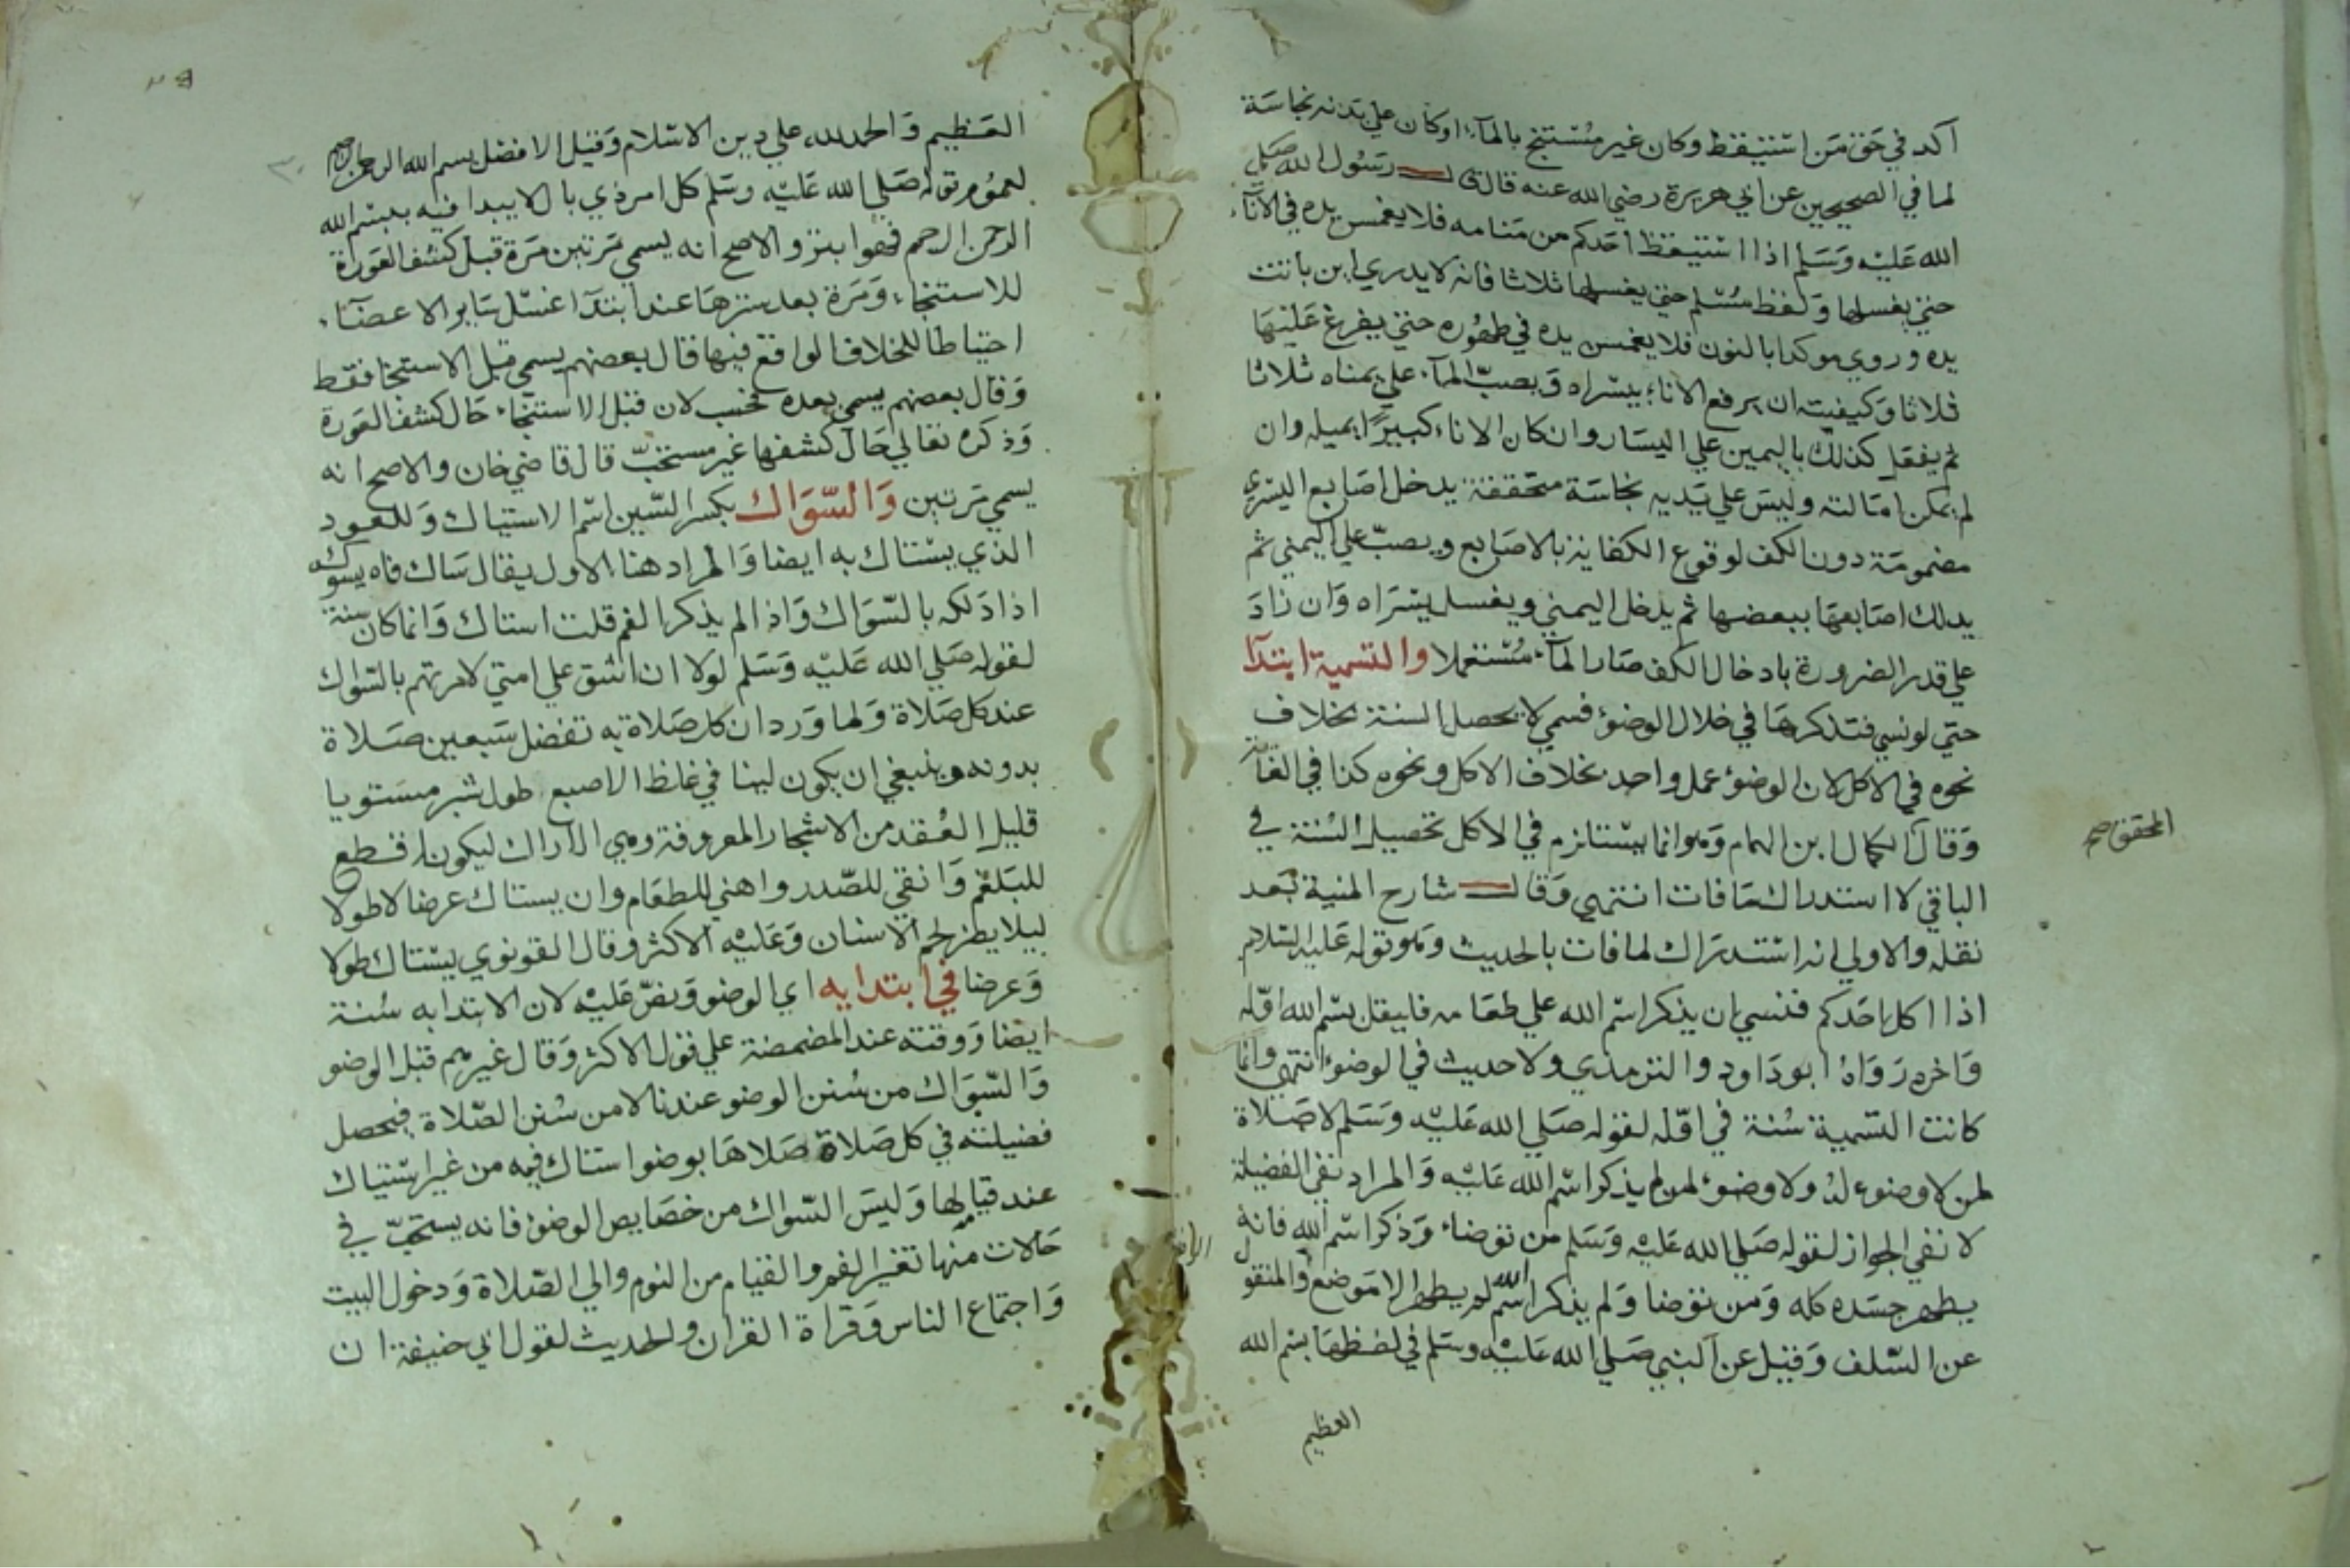 آكد في حق من استيقظ وكان غير مستنج بالمآء اوكان علي بدنه نجاسة
لما في الصحيحين عن ابي هريرة رضي الله عنه قال قال رسول الله صلي
الله عليه وسلم اذا استيقظ احدكم من منامه فلا يغمس يده في الانآء
حتي يغسلها ولفظ مسلم حتي يغسلها ثلاثا فانه لا يدري اين باتت
يده وروي موكدا بالنون فلا يغمسن يده في طهوره حتي يفرغ عليها
ثلاثا وكيفيته ان يرفع الاناء بيسراه ويصب المآء علي يمناه ثلاثا
ثم يفعل كذلك باليمين علي اليسار وان كان الاناء كبيرا يميله وان
لم يمكن امالته وليس علي يديه نجاسة متحققة يدخل اصابع اليسري
مضمومة دون الكف لوقوع الكفاية بالاصابع ويصب علي اليمني ثم
يدلك اصابعها ببعضها ثم يدخل اليمني ويغسل يسراه وان زاد
علي قدر الضرورة بادخال الكف صار المآء مستعملا والتسمية ابتدآ
حتي لو نسي فتذكرها في خلال الوضوء فسمي لا يحصل السنة بخلاف
نحوه في الاكل لان الوضوء عمل واحد بخلاف الاكل ونحوه كذا في الغاية
وقال الكمال ابن الهمام وهو انما يستلزم في الاكل تحصيل السنة في
المحقق صح
الباقي لا استدراك ما فات انتهي وقال شارح المنية بعد
نقله والاولي انه استدراك لما فات بالحديث وهو قوله عليه السلام
اذا اكل احدكم فنسي ان يذكر اسم الله علي طعامه فليقل بسم الله اوله
واخره رواه ابو داود والترمذي ولا حديث في الوضوء انتهي وانما
كانت التسمية سنة في اوله لقوله صلي الله عليه وسلم لا صلاة
لمن لا وضوء له ولا وضوء لمن لم يذكر اسم الله عليه والمراد نفي الفضيلة
لا نفي الجواز لقوله صلي الله عليه وسلم من توضاء وذكر اسم الله فانه
يطهر جسده كله ومن توضا ولم يذكر اسم الله لم يطهر الا موضع والمنقول
عن السلف وقيل عن النبي صلي الله عليه وسلم في لفظها بسم الله
العظيم
العظيم والحمد لله علي دين الاسلام وقيل الافضل بسم الله الرحمن الرحيم
لعموم قوله صلي الله عليه وسلم كل امر ذي بال لا يبدا فيه ببسم الله
الرحمن الرحيم فهو ابتر والاصح انه يسمي مرتين مرة قبل كشف العورة
للاستنجاء ومرة بعد سترها عند ابتدآ غسل ساير الاعضآء
احتياطا للخلاف الواقع فيها قال بعضهم يسمي قبل الاستنجا فقط
وقال بعضهم يسمي بعده فحسب لان قبل الاستنجاء حال كشف العورة
وذكره تعالي حال كشفها غير مستحب قال قاضي خان والاصح انه
يسمي مرتين والسواك بكسر السين اسم الاستياك وللعود
الذي يستاك به ايضا والمراد هنا الاول يقال ساك فاه يسوكه
اذا دلكه بالسواك واذا لم يذكر الفم قلت استاك وانما كان سنة
لقوله صلي الله عليه وسلم لولا ان اشق علي امتي لامرتهم بالسواك
عند كل صلاة ولما ورد ان كل صلاة به تفضل سبعين صلاة
بدونه وينبغي ان يكون لينا في غلظ الاصبع طول شبر مستويا
قليل العقد من الاشجار المعروفة وهي الاراك ليكون اقطع
للبلغم وانقي للصدر واهني للطعام وان يستاك عرضا لا طولا
ليلا يطز لحم الاسنان وعليه الاكثر وقال القونوي يستاك طولا
وعرضا في ابتدايه اي الوضو ونص عليه لان الابتدا به سنة
ايضا ووقته عند المضمضة علي قول الاكثر وقال غيرهم قبل الوضو
والسواك من سنن الوضو عندنا لا من سنن الصلاة فيحصل
فضيلته في كل صلاة صلاها بوضوا ستاك فيه من غير استياك
عند قيامه لها وليس السواك من خصايص الوضوء فانه يستحب في
حالات منها تغير الفم والقيام من النوم والي الصلاة ودخول البيت
واجتماع الناس وقراة القران والحديث لقول ابي حنيفة ان